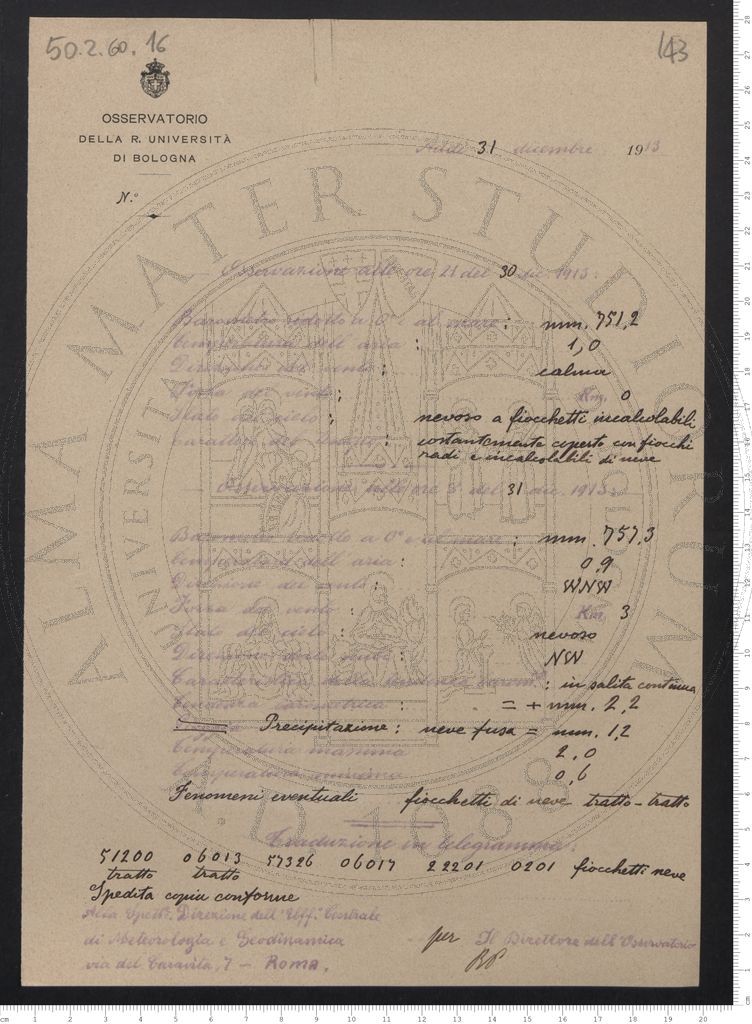 50.2.60.16
143
OSSERVATORIO
DELLA R. UNIVERSITÀ
DI BOLOGNA
N.º
Addì 31 dicembre 1913
Osservazione alle ore 21 del 30 dic. 1913:
Barometro ridotto a 0° e al mare: mm. 751,2
Temperatura dell'aria: 1,0
Direzione del vento: calma
Forza del vento: Km. 0
Stato del cielo: nevoso a fiocchetti incalcolabili
Carattere del tempo: costantemente coperto con fiocchi
radi e incalcolabili di neve
Osservazione alle ore 8 del 31 dic. 1913:
Barometro ridotto a 0° e al mare: mm. 757,3
Temperatura dell'aria: 0,9
Direzione del vento: WNW
Forza del vento: Km. 3
Stato del cielo: nevoso
Direzione delle nubi: NW
Caratteristica della tendenza barom.: in salita continua
Tendenza barometrica: = + mm. 2,2
Precipitazione: neve fusa = mm. 1,2
Temperatura massima 2,0
Temperatura minima 0,6
Fenomeni eventuali fiocchetti di neve tratto-tratto
Traduzione in telegramma:
51200 06013 57326 06017 22201 0201 fiocchetti neve
tratto tratto
Spedita copia conforme
Alla Spett. Direzione dell'Uff. Centrale
di Meteorologia e Geodinamica
via del Caravita, 7 – Roma.
per Il Direttore dell'Osservatorio
ALMA MATER STUDIORUM
A.D. 1088